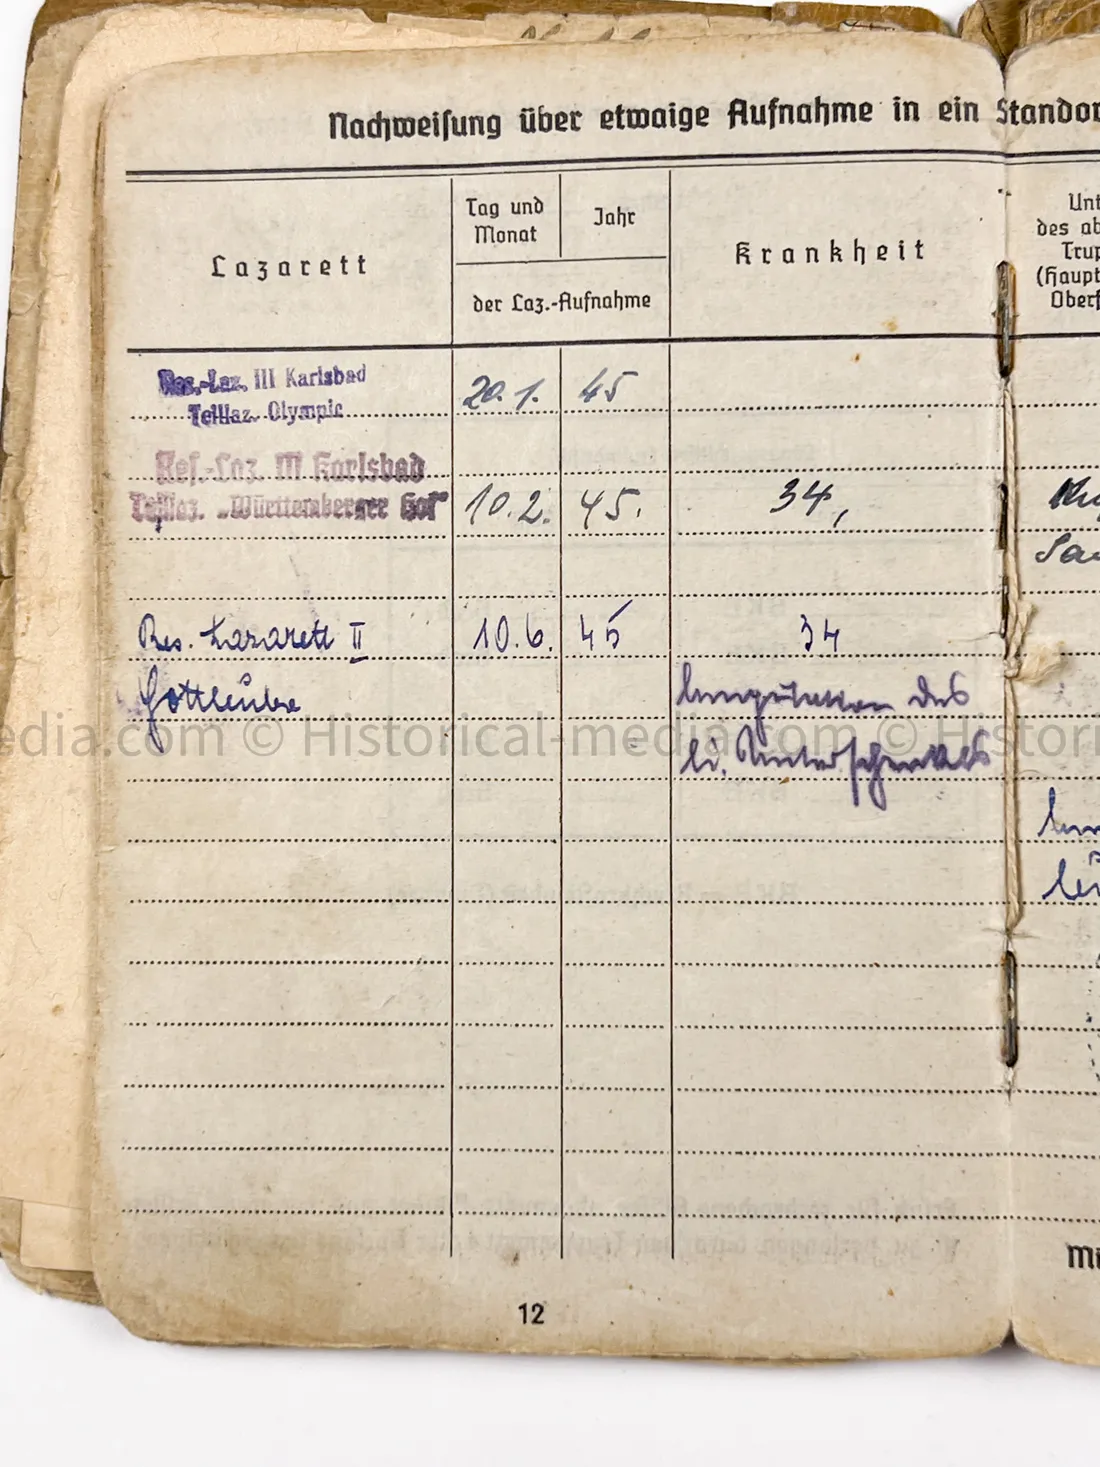 Nachweisung über etwaige Aufnahme in ein Standor
Lazarett
Tag und Monat
Jahr
der Laz.-Aufnahme
Krankheit
Unt
des ab
Trup
(Haupt
Oberf
Res.-Laz. III Karlsbad
Teillaz. Olympic
20.1. 45
Res.-Laz. III Karlsbad
Teillaz. „Württemberger Hof“
10.2. 45. 34,
Res. Lazarett II 10.6. 45 34
Gottleuba Amputation des
li. Unterschenkels
12
edia.com © Historical-media.com © Histori